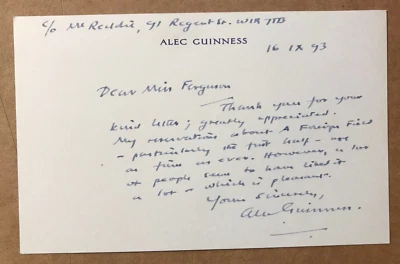 c/o McReddie, 91 Regent St. W1R 7TB
ALEC GUINNESS
16 IX 93
Dear Miss Ferguson
Thank you for your
kind letter; greatly appreciated.
My reservations about A Foreign Field
- particularly the first half - are
as firm as ever. However, a lot
of people seem to have liked it
a lot - which is pleasant.
Yours sincerely,
Alec Guinness.